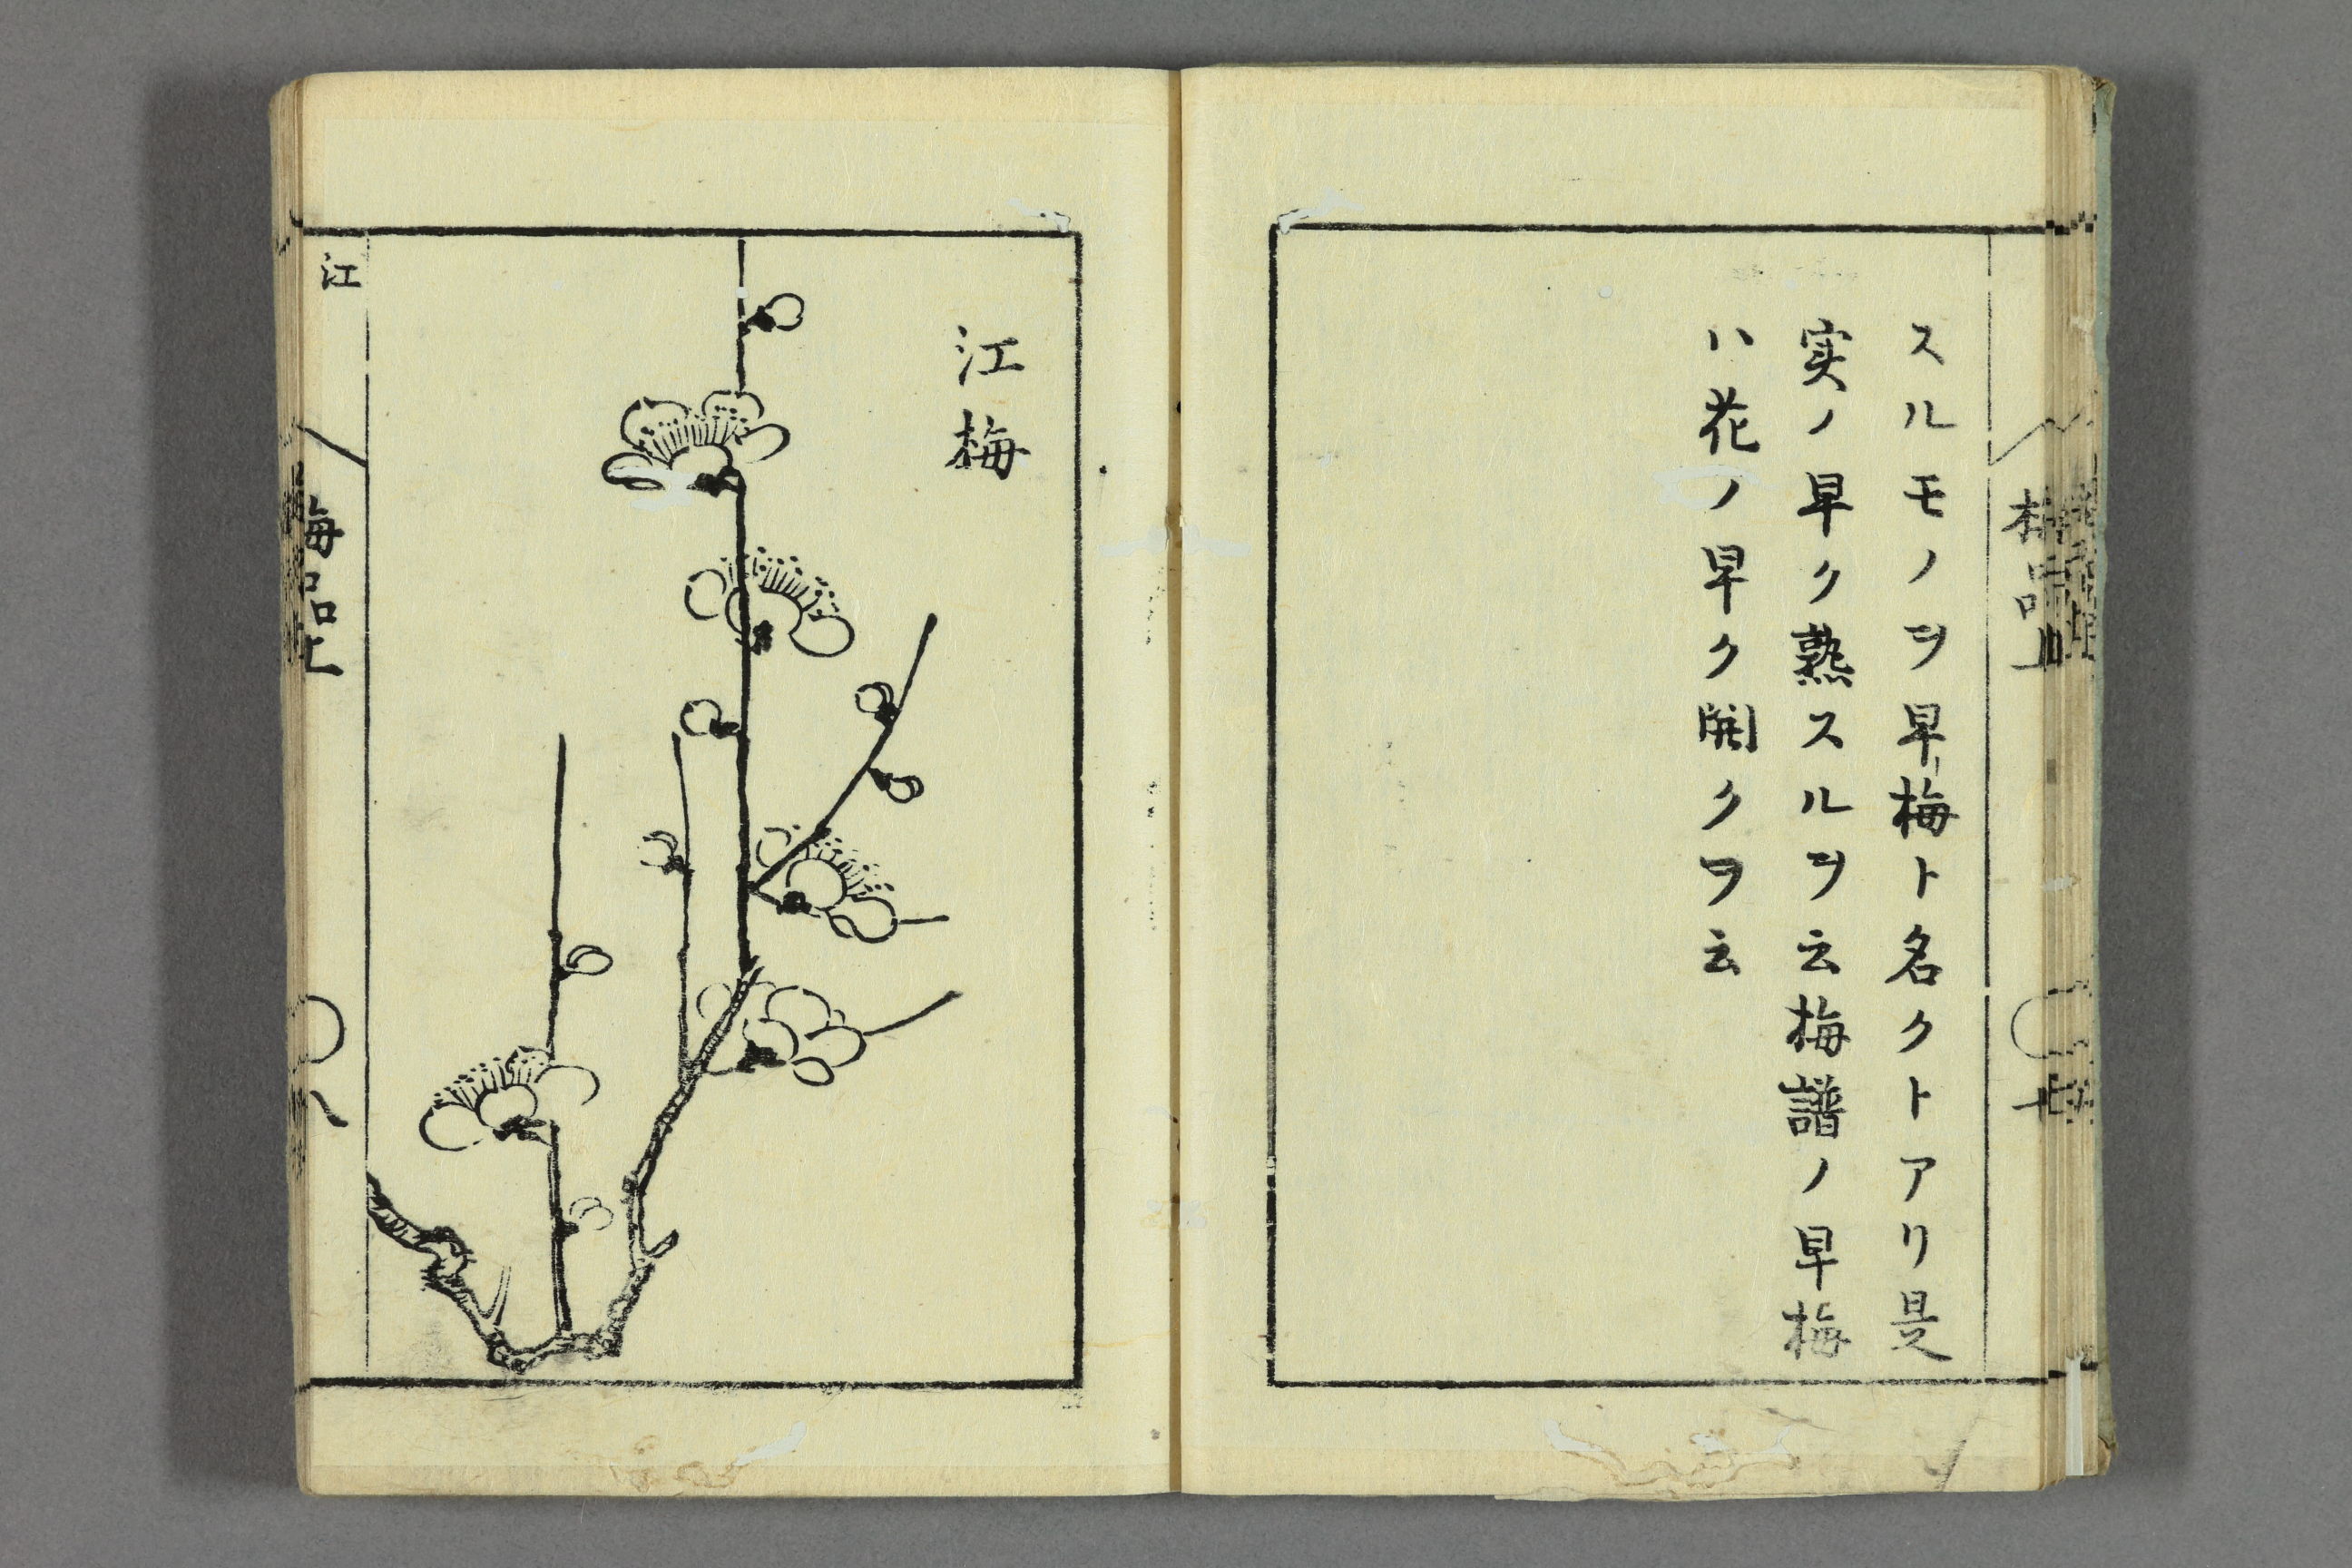 スルモノヲ早梅ト名クトアリ是
実ノ早ク熟スルヲ云梅譜ノ早梅
ハ花ノ早ク開クヲ云
江梅
江
梅品上
八